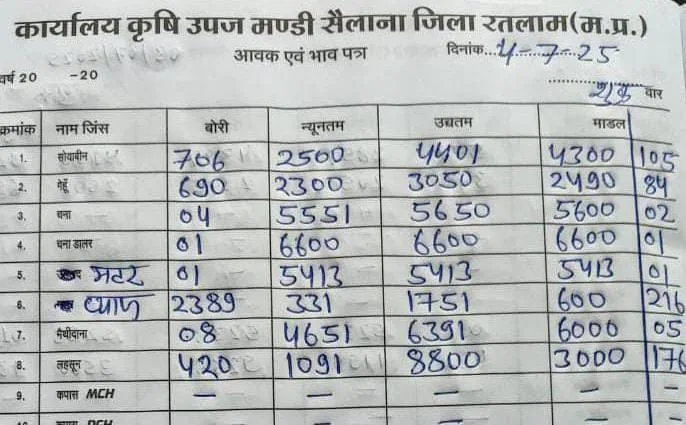 कार्यालय कृषि उपज मण्डी सैलाना जिला रतलाम(म.प्र.)
आवक एवं भाव पत्रा दिनांक...4-7-25
वर्ष 20 -20
शुक्र वार
क्रमांक नाम जिंस बोरी न्यूनतम उच्चतम माडल
1. सोयाबीन 706 2500 4401 4300 105
2. गेहूँ 690 2300 3050 2490 84
3. चना 04 5551 5650 5600 02
4. चना डालर 01 6600 6600 6600 01
5. मटर 01 5413 5413 5413 01
6. प्याज 2389 331 1751 600 216
7. मैथीदाना 08 4651 6391 6000 05
8. लहसून 420 1091 8800 3000 176
9. कपास MCH — — — — —
10. कपास DCH